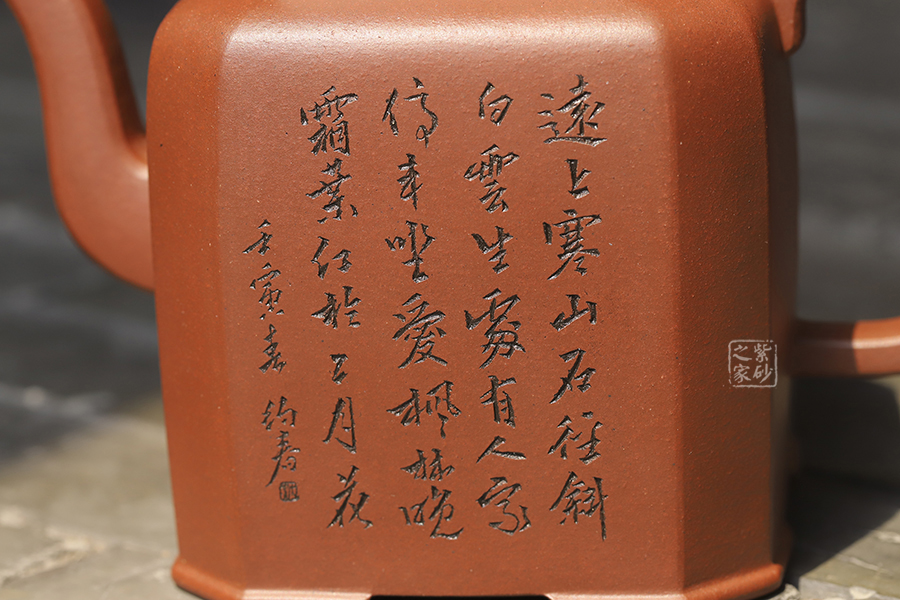 遠上寒山石徑斜
白雲生處有人家
停車坐愛楓林晚
霜葉紅於二月花
壬寅春 韵春
紫砂之家